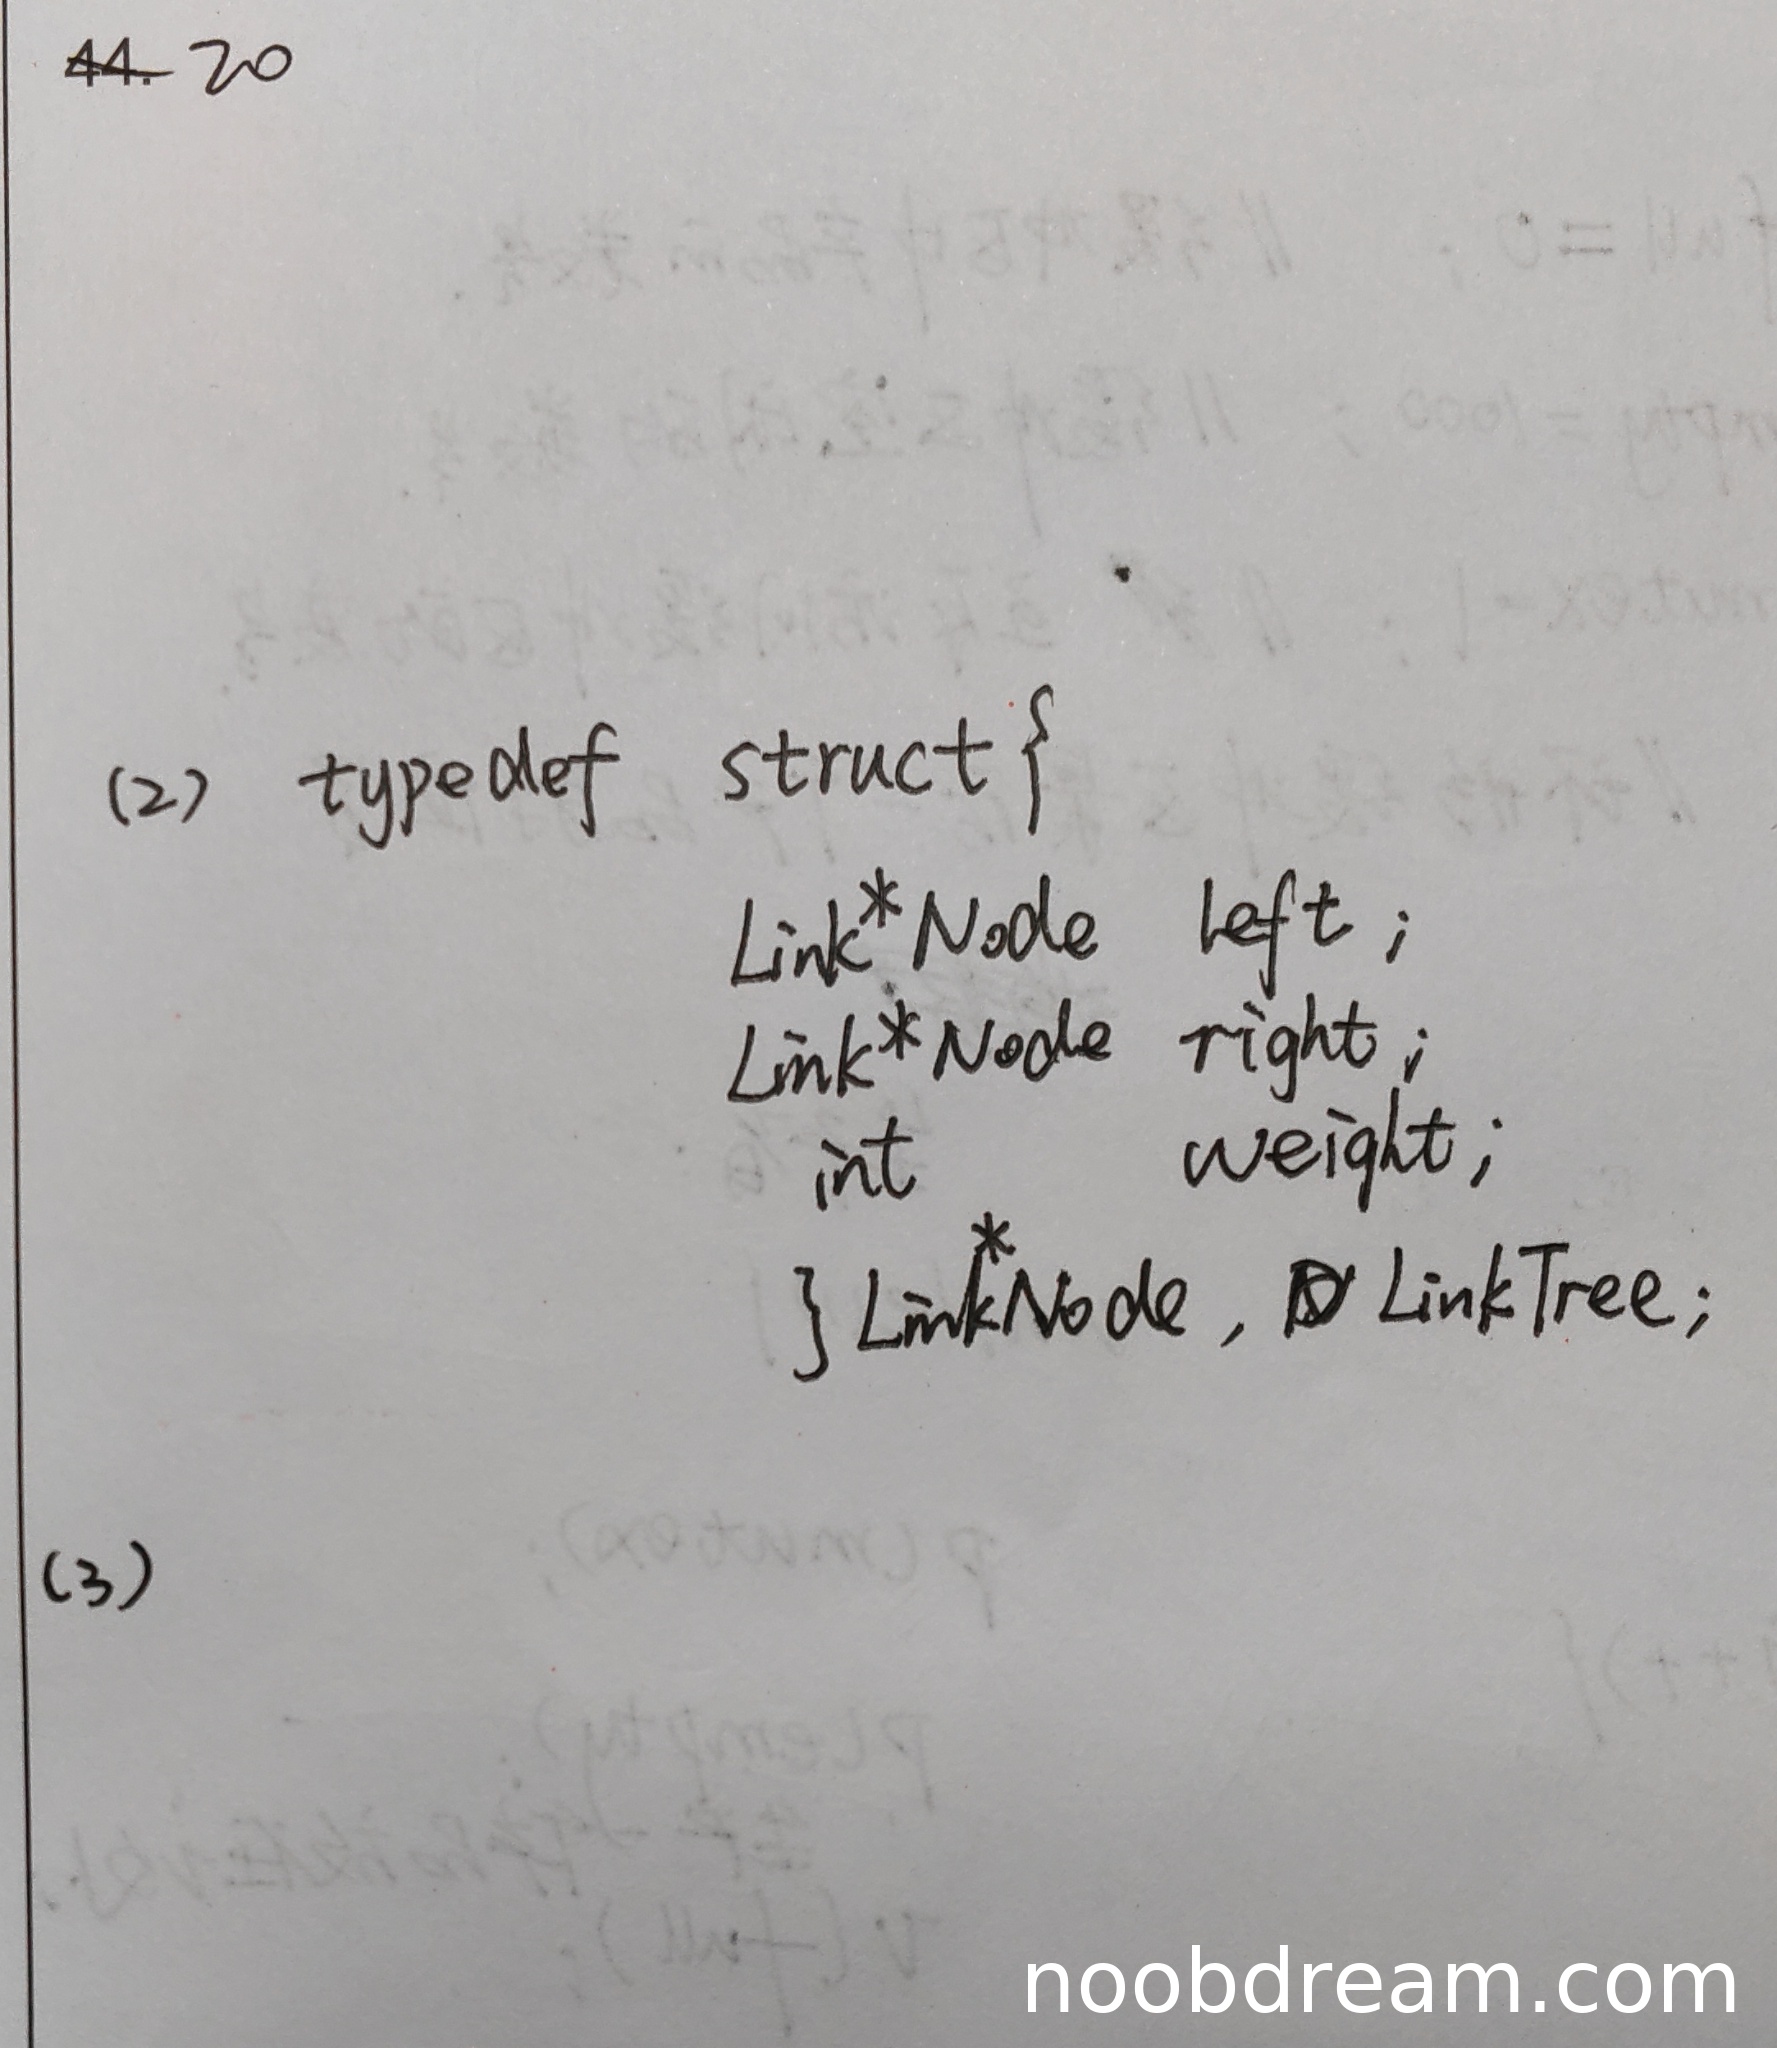 44. 20
(2) typedef struct {
Link*Node left;
Link*Node right;
int weight;
} Link*Node, LinkTree;
(3)
noobdream.com